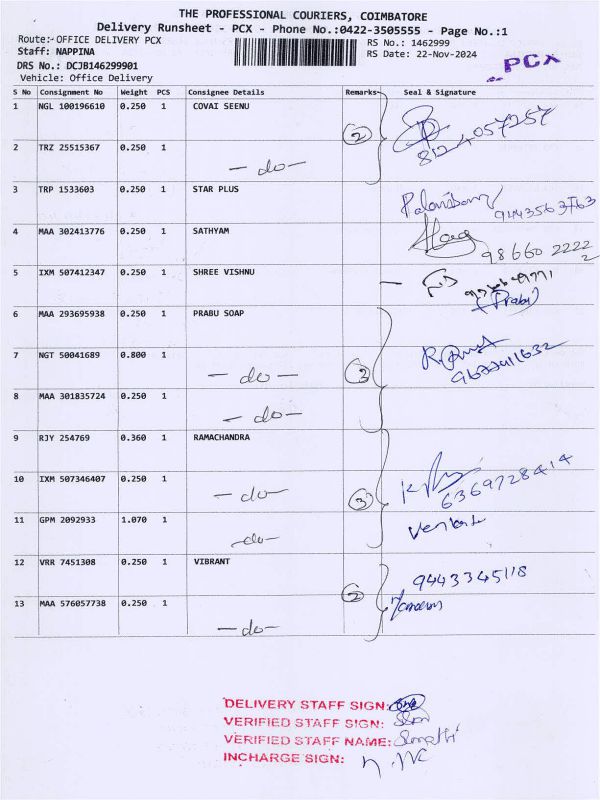 THE PROFESSIONAL COURIERS, COIMBATORE
Delivery Runsheet - PCX - Phone No.:0422-3505555 - Page No.:1
Route:- OFFICE DELIVERY PCX
RS No.: 1462999
Staff: NAPPINA
RS Date: 22-Nov-2024
PCX
DRS No.: DCJB146299901
Vehicle: Office Delivery
S No Consignment No Weight PCS Consignee Details Remarks Seal & Signature
1 NGL 100196610 0.250 1 COVAI SEENU
② 8124057257
2 TRZ 25515367 0.250 1
- do -
3 TRP 1533603 0.250 1 STAR PLUS
9443563763
4 MAA 302413776 0.250 1 SATHYAM
98660 22222
5 IXM 507412347 0.250 1 SHREE VISHNU
(Prabu)
6 MAA 293695938 0.250 1 PRABU SOAP
7 NGT 50041689 0.800 1
- do - ③
8 MAA 301835724 0.250 1
- do -
9 RJY 254769 0.360 1 RAMACHANDRA
6369728414
10 IXM 507346407 0.250 1
- do - ③
11 GPM 2092933 1.070 1 Venkat
- do -
12 VRR 7451308 0.250 1 VIBRANT
9443345118
②
13 MAA 576057738 0.250 1
- do -
DELIVERY STAFF SIGN:
VERIFIED STAFF SIGN:
VERIFIED STAFF NAME:
INCHARGE SIGN: